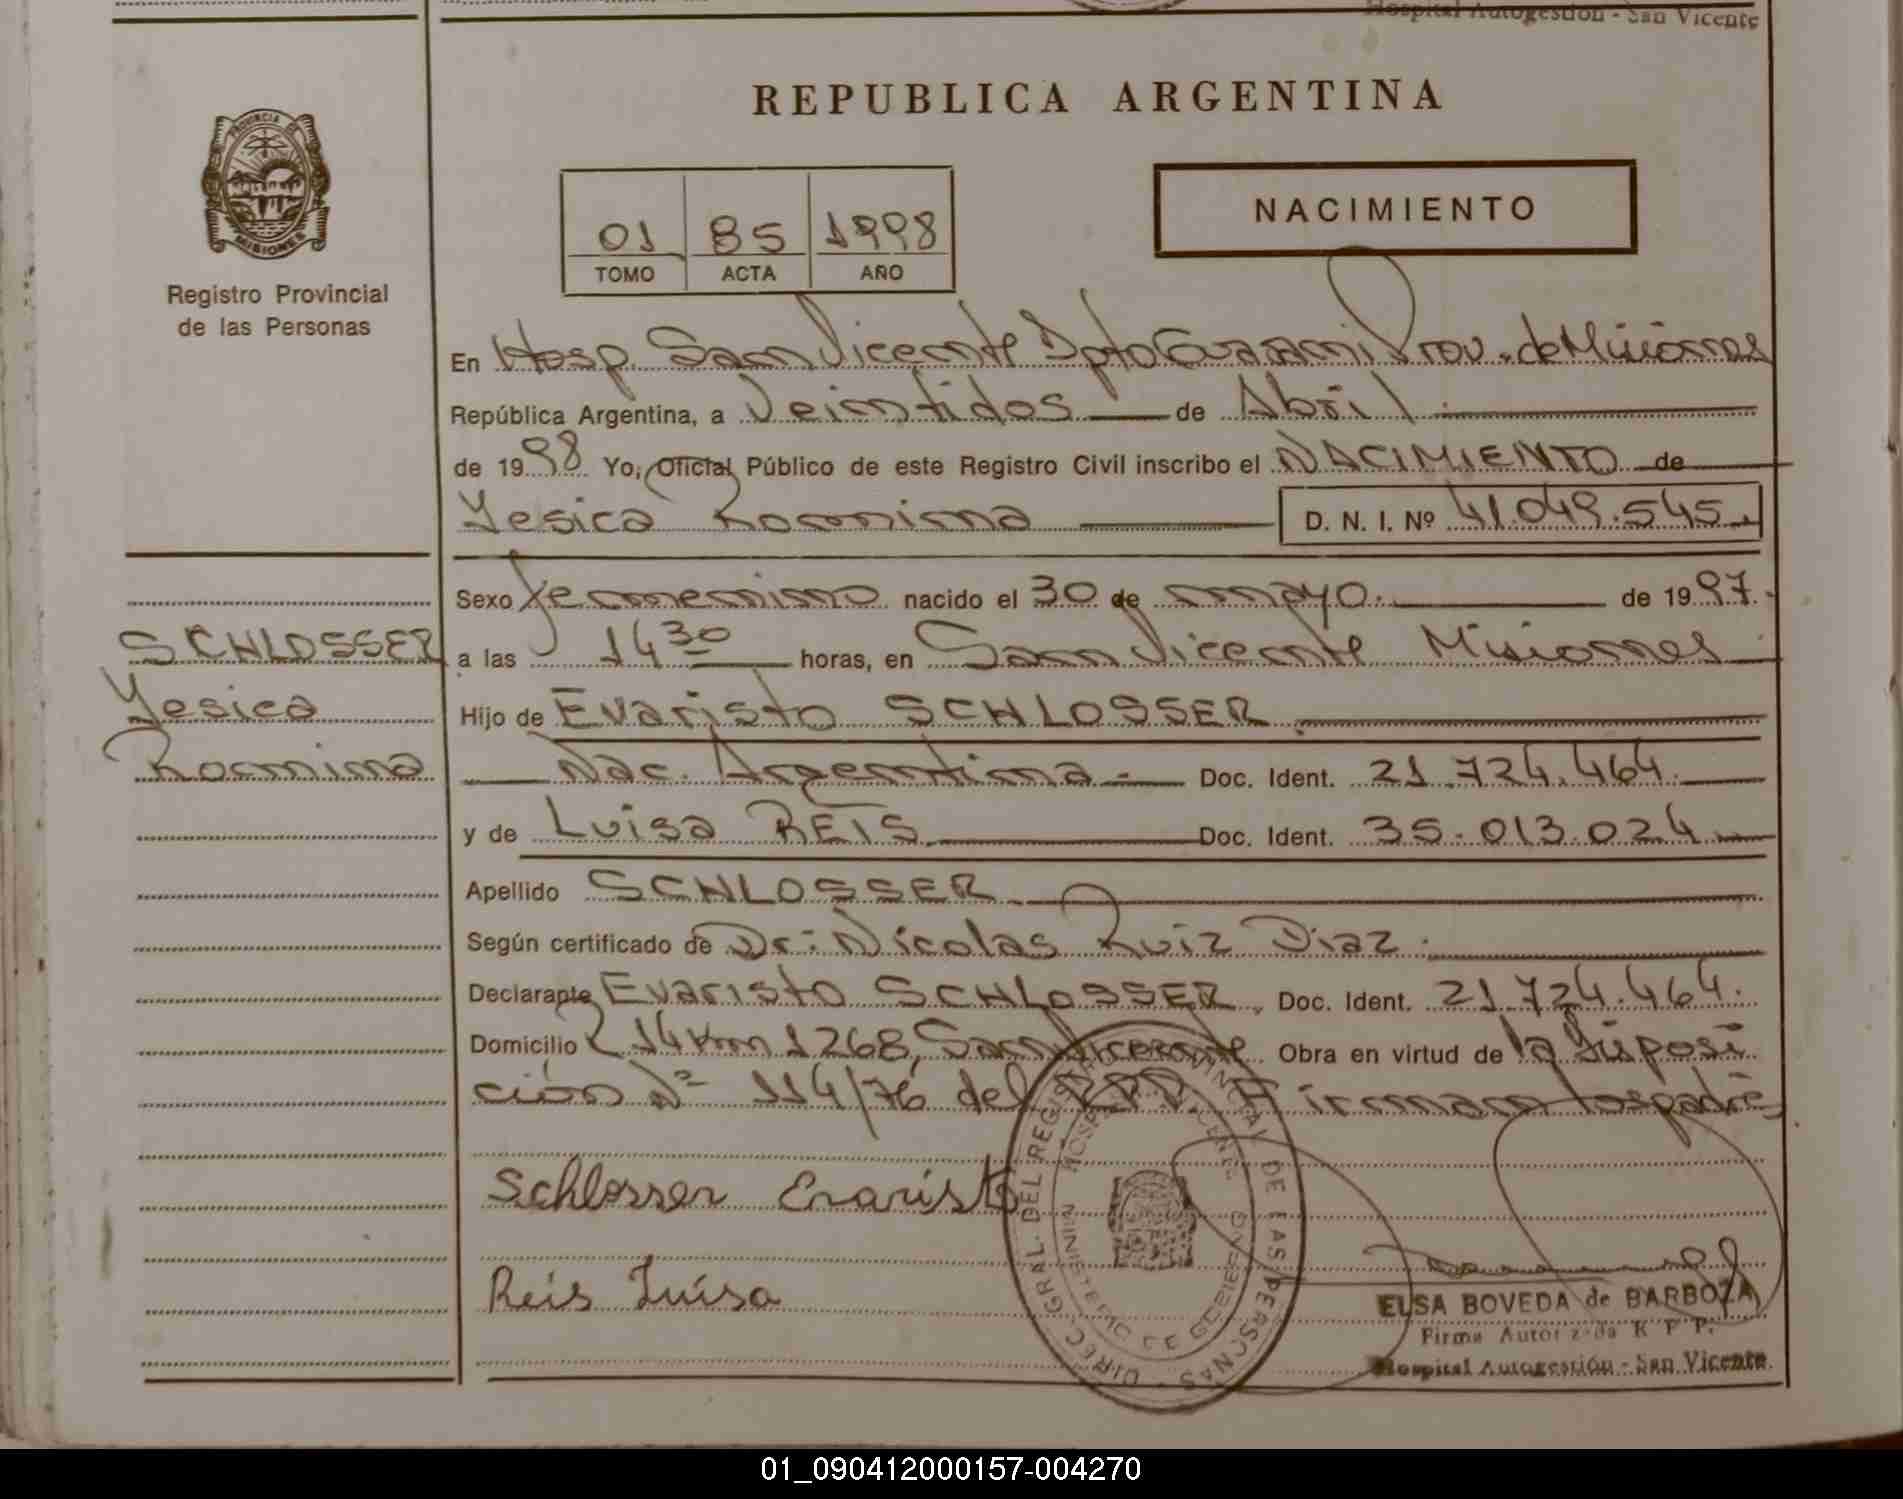 Hospital Autogestión - San Vicente
REPUBLICA ARGENTINA
PROVINCIA DE
MISIONES
Registro Provincial
de las Personas
01 85 1998
TOMO ACTA AÑO
NACIMIENTO
En Hosp. San Vicente Dpto Guaraní Prov. de Misiones
República Argentina, a Veintidos de Abril
de 1998 Yo, Oficial Público de este Registro Civil inscribo el NACIMIENTO de
Yesica Romina D. N. I. Nº 41.049.545.
Sexo femenino nacido el 30 de mayo. de 1997.
SCHLOSSER
Yesica
Romina
a las 14 30 horas, en San Vicente Misiones
Hijo de Evaristo SCHLOSSER.
Nac. Argentina.- Doc. Ident. 21.724.464.
y de Luisa REIS. Doc. Ident. 35.013.024.
Apellido SCHLOSSER
Según certificado de Dr: Nicolas Ruiz Diaz.
Declarante Evaristo SCHLOSSER, Doc. Ident. 21.724.464.
Domicilio R 14 Km 1268, San Vicente. Obra en virtud de la Disposi
ción Nº 114/76 del RPP. Firman los padres
Schlosser Evaristo
Reis Luisa
DIREC. GRAL. DEL REGISTRO PROVINCIAL DE LAS PERSONAS
MINISTERIO DE GOBIERNO
ELSA BOVEDA de BARBOZA
Firma Autorizada R P P.
Hospital Autogestión - San Vicente
01_090412000157-004270